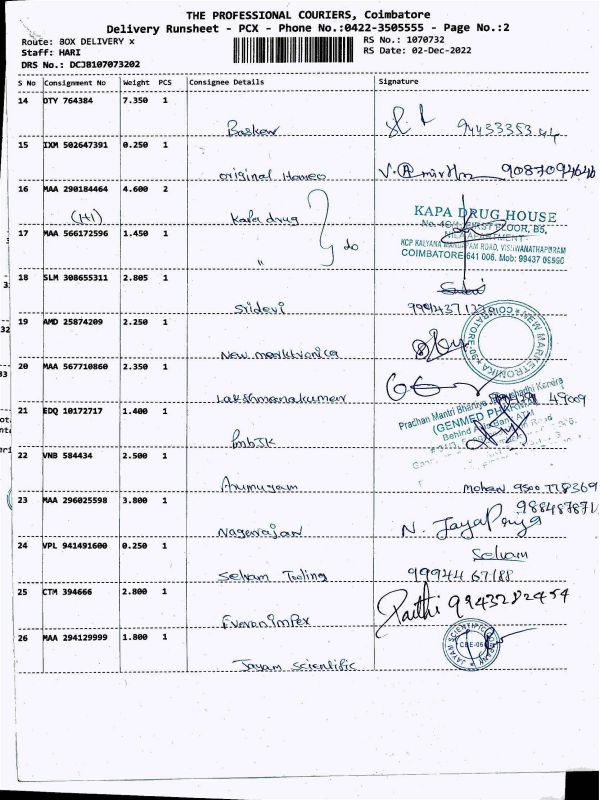 THE PROFESSIONAL COURIERS, Coimbatore
Delivery Runsheet - PCX - Phone No.:0422-3505555 - Page No.:2
Route: BOX DELIVERY x
RS No.: 1070732
Staff: HARI
RS Date: 02-Dec-2022
DRS No.: DCJB107073202
S No Consignment No Weight PCS Consignee Details Signature
14 DTY 764384 7.350 1
Baskew
15 IXM 502647391 0.250 1
original Homeo 9087094646
16 MAA 290184464 4.600 2
(H1) Kapa drug
KAPA DRUG HOUSE
FIRST FLOOR, B5,
17 MAA 566172596 1.450 1
" do
KCP KALYANA ROAD, VISWANATHAPURAM
COIMBATORE 641 006. Mob: 99437
18 SLM 308655311 2.805 1
Sridevi
19 AMD 25874209 2.250 1
New marktronica
NEW MARKTRONIKA
20 MAA 567710860 2.350 1
Lakshmanakumar 49009
21 EDQ 10172717 1.400 1
PMBJK
Pradhan Mantri Bhartiya Kendra
(GENMED
Behind
22 VNB 584434 2.500 1
Arumugam Mohan 9500 778369
23 MAA 296025598 3.800 1
988487871
Nagarajan N. JayaPriya
24 VPL 941491600 0.250 1
Selvam
Selvam Tooling 99944 67188
25 CTM 394666 2.800 1
9943282454
26 MAA 294129999 1.800 1
JAYAM SCIENTIFIC COMPANY
CBE-06
Jayam Scientific